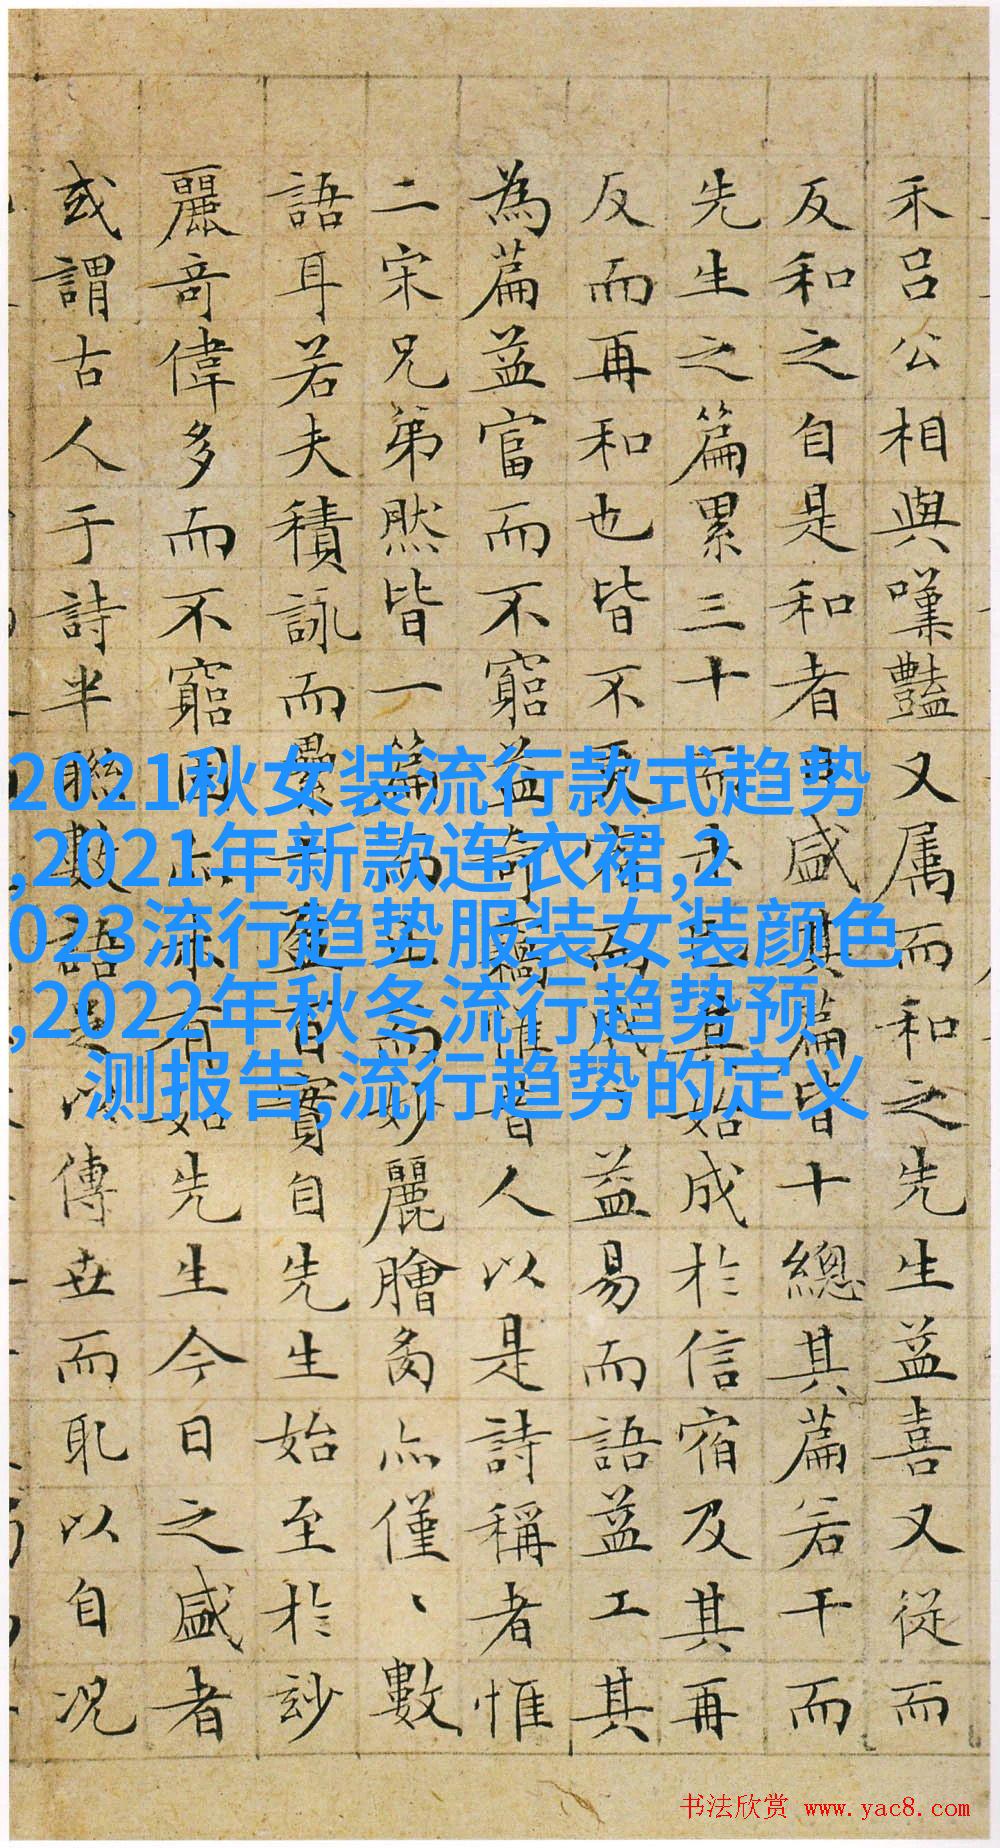 禾呂公相與嘆豔又属而和之先生益喜又從而
反和之自是和者盛其篇皆十總其篇若干而
先生之篇累三十而始成於信宿及其再
反而再和也皆不更宿而成益易而語益工其
為篇益富而不窮益奇惟昔人以是詩稱者惟
二宋兄弟然皆一篇而止而妙麗膾炙亦僅、數
語耳若夫積詠而疊盈百實自先生始至於玅
麗奇偉多而不窮固未有如先生今日之盛者
或謂古人于詩半聯數語足以傳世而耻以自况
2021秋女装流行款式趋势
,2021年新款连衣裙,2
023流行趋势服装女装颜色
,2022年秋冬流行趋势预
测报告,流行趋势的定义
书法欣赏 www.yac8.com